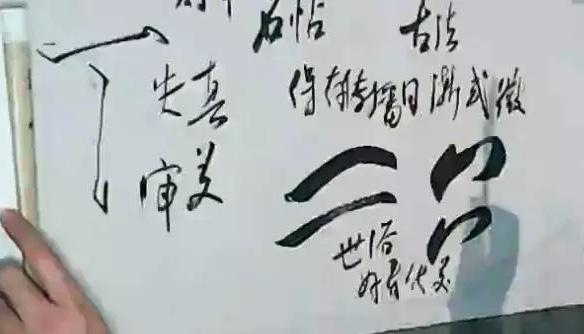 石帖 古法
失真 保存传播日渐式微
审美
世俗
好看代美